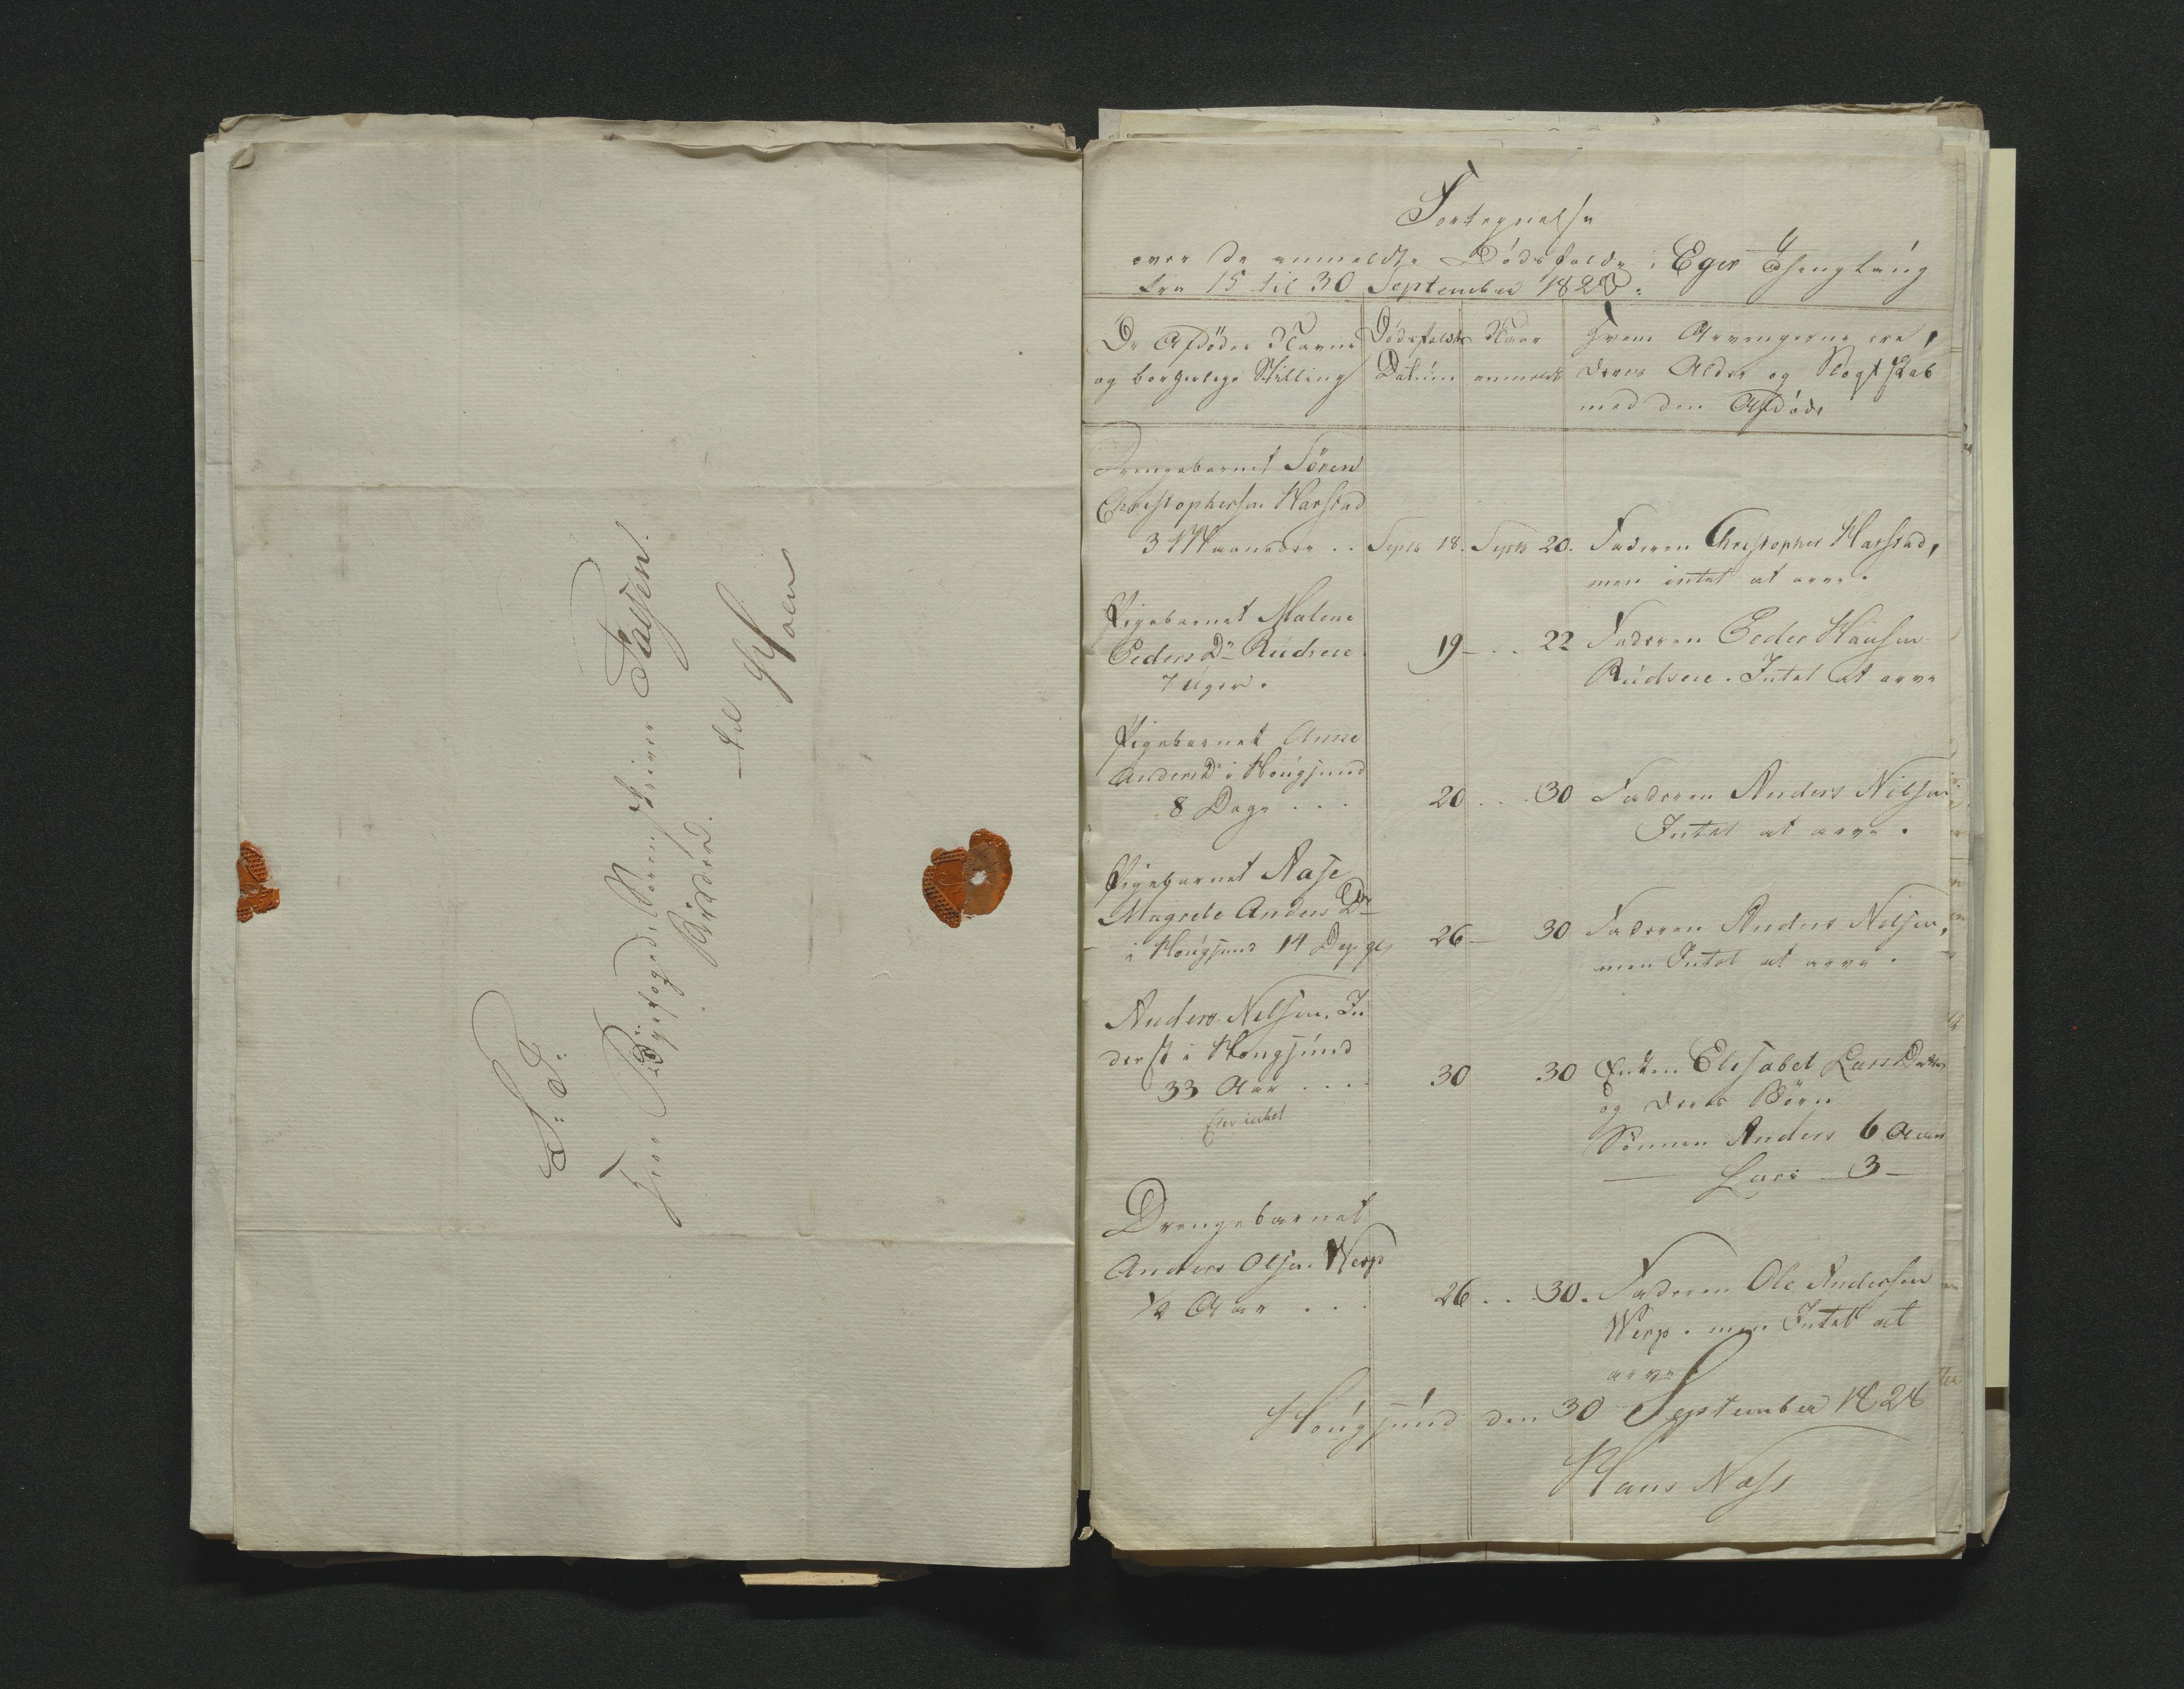 S: T:
Herr Byefoged, Sorenskriver Falsen.
Ridder.
til Hoen
Fortegnelse
over de anmeldte Dödsfalde i Eger Thinglaug
fra 15 til 30 September 1828.
De Afdödes Navne
og borgerlige Stilling
Dödsfaldets
Datum
Naar
anmeldt
Hvem Arvengerne ere,
deres Alder og Slægtskab
med den Afdöde
Drengebarnet Sören
Christophersen Harstad
3 Maaneder . . Septb 18. Septb 20. Faderen Christopher Harstad,
men intet at arve.
Pigebarnet Malene
Peders Dr Rudseie 19 - . . 22 Faderen Peder Hansen
7 Uger. Rudseie. Intet at arve
Pigebarnet Anne
Anders Dr i Hougsund
8 Dage . . . 20 . . . 30 Faderen Anders Nilsen
Intet at arve.
Pigebarnet Aase
Magrete Anders Dr
i Hougsund 14 Dage gl 26 - 30 Faderen Anders Nilsen,
men Intet at arve.
Anders Nilsen, In
derst i Hougsund
33 Aar . . . . 30 30 Enken Elisabet Lars Datter
og deres Börn
Eier intet
Sönnen Anders 6 Aar
— Lars — 3 —
Drengebarnet
Anders Olsen Werp
1/2 Aar . . . 26 . . . 30. Faderen Ole Andersen
Werp. men Intet at
arve.
Hougsund den 30 September 1828
Hans Næss